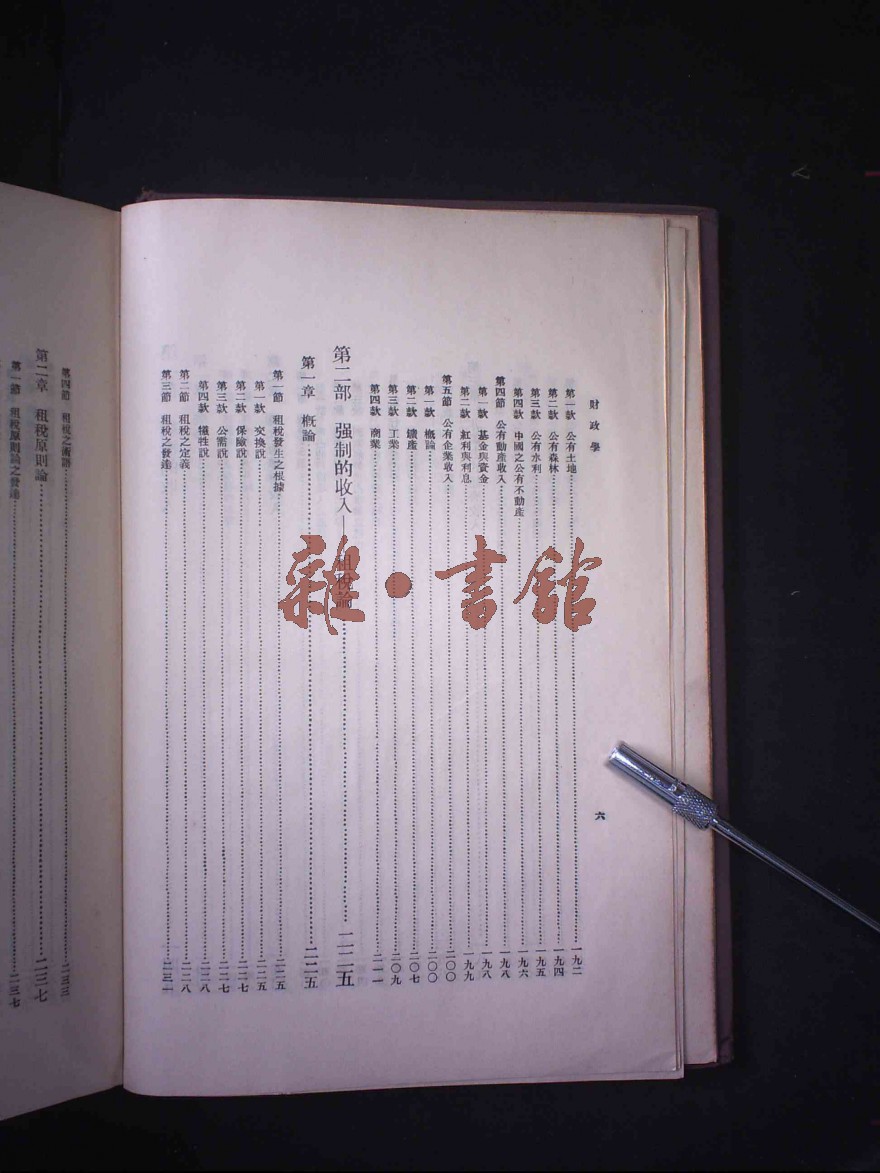 財政學
六
第一款 公有土地 一九二
第二款 公有森林 一九四
第三款 公有水利 一九五
第四款 中國之公有不動產 一九六
第四節 公有動產收入 一九八
第一款 基金與資金 一九八
第二款 紅利與利息 一九九
第五節 公有企業收入 二〇〇
第一款 概論 二〇〇
第二款 鑛產 二〇七
第三款 工業 二〇九
第四款 商業 二一一
第二部 强制的收入——租稅論 二二五
第一章 概論 二二五
第一節 租稅發生之根據 二二五
第一款 交換說 二二五
第二款 保險說 二二七
第三款 公需說 二二七
第四款 犧牲說 二二八
第二節 租稅之定義 二二八
第三節 租稅之發達 二三一
第四節 租稅之術語 二三三
第二章 租稅原則論 二三七
第一節 租稅原則論之發達 二三七
雜·書館